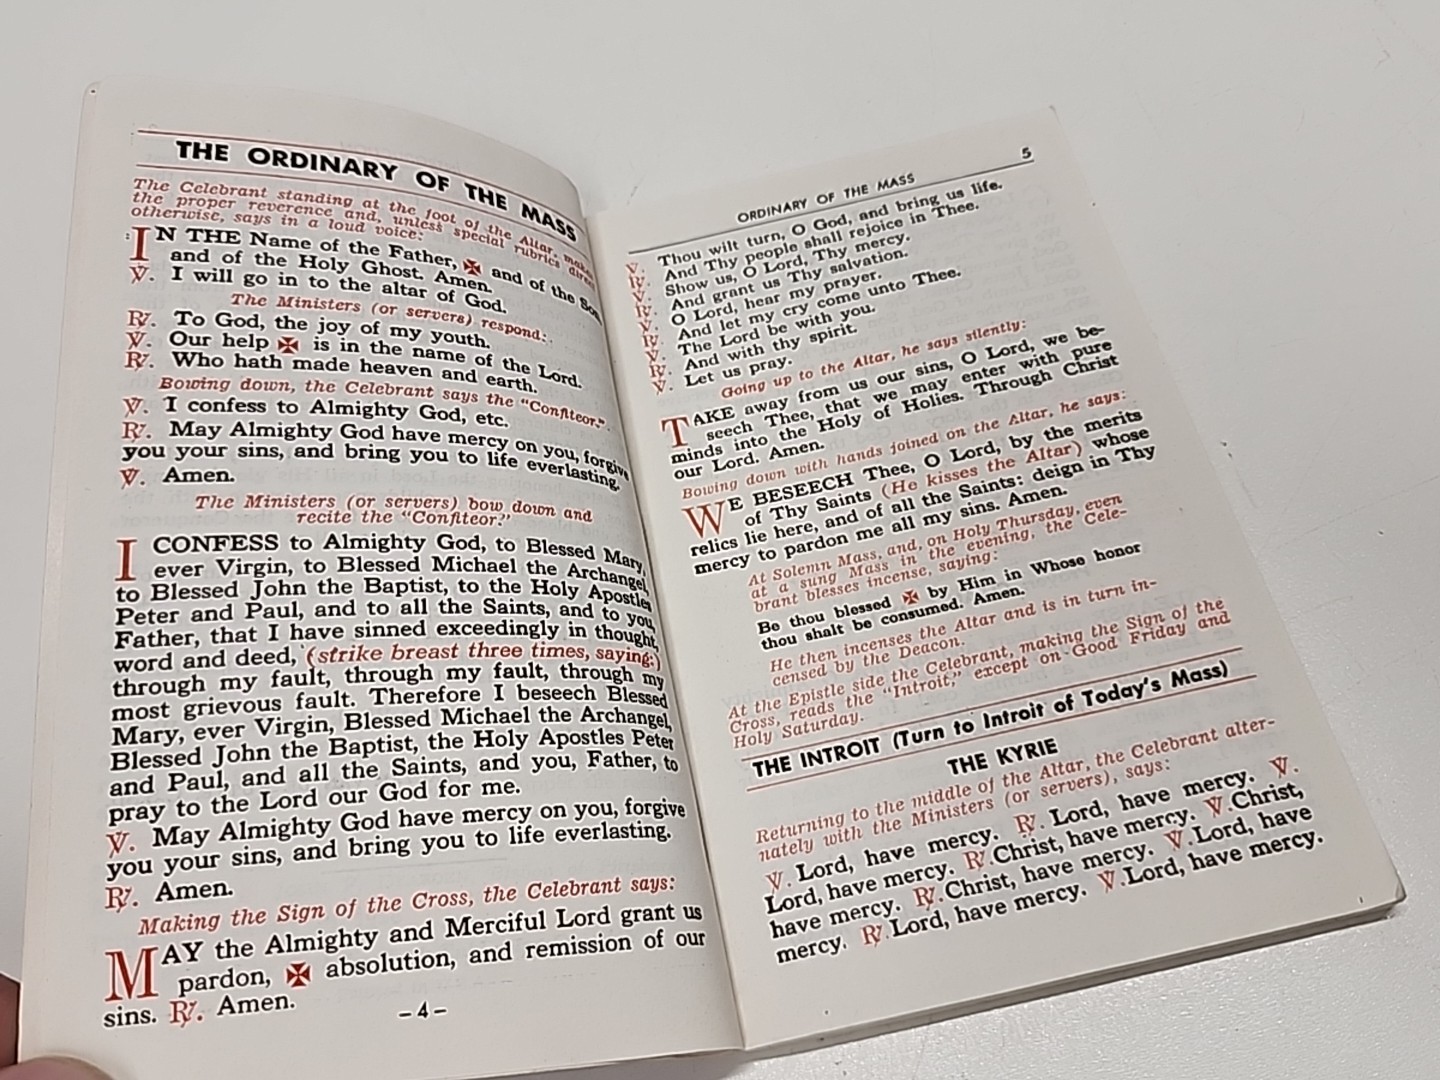 THE ORDINARY OF THE MASS
The Celebrant standing at the foot of the Altar, makes
the proper reverence and, unless special rubrics direct
otherwise, says in a loud voice:
IN THE Name of the Father, ✠ and of the Son
and of the Holy Ghost. Amen.
℣. I will go in to the altar of God.
The Ministers (or servers) respond:
℟. To God, the joy of my youth.
℣. Our help ✠ is in the name of the Lord.
℟. Who hath made heaven and earth.
Bowing down, the Celebrant says the "Confiteor."
℣. I confess to Almighty God, etc.
℟. May Almighty God have mercy on you, forgive
you your sins, and bring you to life everlasting.
℣. Amen.
The Ministers (or servers) bow down and
recite the "Confiteor."
I CONFESS to Almighty God, to Blessed Mary,
ever Virgin, to Blessed Michael the Archangel,
to Blessed John the Baptist, to the Holy Apostles
Peter and Paul, and to all the Saints, and to you,
Father, that I have sinned exceedingly in thought,
word and deed, (strike breast three times, saying:)
through my fault, through my fault, through my
most grievous fault. Therefore I beseech Blessed
Mary, ever Virgin, Blessed Michael the Archangel,
Blessed John the Baptist, the Holy Apostles Peter
and Paul, and all the Saints, and you, Father, to
pray to the Lord our God for me.
℣. May Almighty God have mercy on you, forgive
you your sins, and bring you to life everlasting.
℟. Amen.
Making the Sign of the Cross, the Celebrant says:
MAY the Almighty and Merciful Lord grant us
pardon, ✠ absolution, and remission of our
sins. ℟. Amen.
– 4 –
ORDINARY OF THE MASS 5
℣. Thou wilt turn, O God, and bring us life.
℟. And Thy people shall rejoice in Thee.
℣. Show us, O Lord, Thy mercy.
℟. And grant us Thy salvation.
℣. O Lord, hear my prayer.
℟. And let my cry come unto Thee.
℣. The Lord be with you.
℟. And with thy spirit.
℣. Let us pray.
Going up to the Altar, he says silently:
TAKE away from us our sins, O Lord, we be-
seech Thee, that we may enter with pure
minds into the Holy of Holies. Through Christ
our Lord. Amen.
Bowing down with hands joined on the Altar, he says:
WE BESEECH Thee, O Lord, by the merits
of Thy Saints (He kisses the Altar) whose
relics lie here, and of all the Saints: deign in Thy
mercy to pardon me all my sins. Amen.
At Solemn Mass, and, on Holy Thursday, even
at a sung Mass in the evening, the Cele-
brant blesses incense, saying:
Be thou blessed ✠ by Him in Whose honor
thou shalt be consumed. Amen.
He then incenses the Altar and is in turn in-
censed by the Deacon.
At the Epistle side the Celebrant, making the Sign of the
Cross, reads the "Introit," except on Good Friday and
Holy Saturday.
THE INTROIT (Turn to Introit of Today's Mass)
THE KYRIE
Returning to the middle of the Altar, the Celebrant alter-
nately with the Ministers (or servers), says:
℣. Lord, have mercy. ℟. Lord, have mercy. ℣.
Lord, have mercy. ℟. Christ, have mercy. ℣. Christ,
have mercy. ℟. Christ, have mercy. ℣. Lord, have
mercy. ℟. Lord, have mercy. ℣. Lord, have mercy.